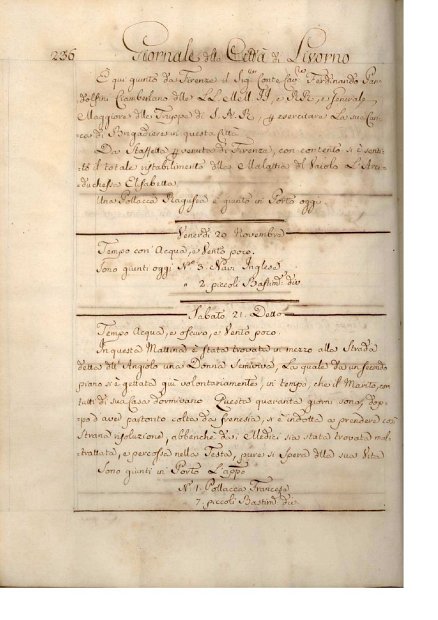 236 Giornale della Città di Livorno
È qui giunto da Firenze il Sigre Conte Cavre Ferdinando Pan-
dolfini Ciamberlano delle LL. MM. II. e RR., e Generale
Maggiore delle Truppe di S. A. R., per esercitare la sua Cari-
ca di Brigadiere in questa Città.
Da Staffetta venuta di Firenze, con contento si è senti-
to il totale ristabilimento dalla Malattia del Vaiolo L'Arci-
duchessa Elisabetta.
Una Pollacca Ragusea è giunta in Porto oggi.
Venerdì 20. Novembre
Tempo con Acqua, e Vento poco.
Sono giunti oggi No. 3. Navi Inglesi
" 2. piccoli Bastimti div
Sabato 21. Detto
Tempo Acqua, e oscuro, e Vento poco.
In questa Mattina è stata trovata in mezzo alla Strada
detta dell'Angiolo una Donna Semiviva, la quale da un secondo
piano si è gettata giù volontariamente, in tempo, che il Marito, con
tutti di sua Casa dormivano. Questa quaranta giorni sono, dop-
po d'aver partorito colta da frenesia, si è indotta a prendere così
strana risoluzione, abbenchè da i Medici sia stata trovata mal-
trattata, e percossa nella Testa, pure si spera della sua Vita
Sono giunti in Porto
No. 1. Pollacca Francese
7. piccoli Bastimti div